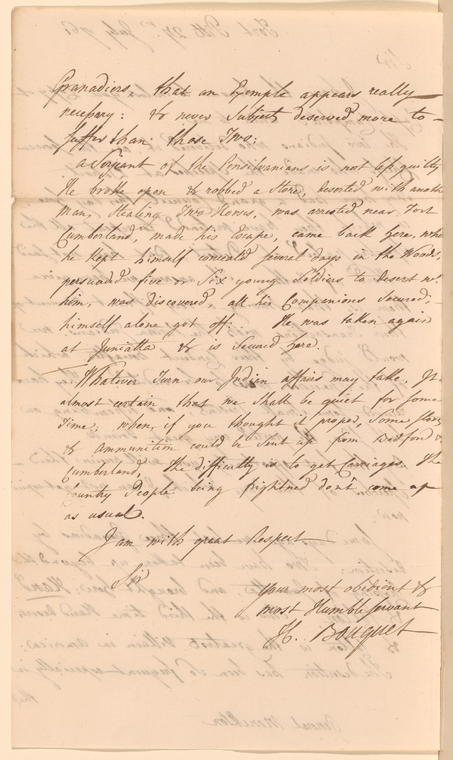 Granadiers, that an Exemple appears really
necessary: & never Subjects deserved more to
suffer than those Two:
a Serjeant of the Pensilvanians is not less guilty
He broke open & robbed a Store, deserted with another
Man, Stealing Two Horses, was arrested near Fort
Cumberland, made his Escape, came back here, where
he kept himself concealed several days in the Woods,
persuaded five or Six young Soldiers to desert wt.
him, was discovered, all his Companions Secured:
himself alone got off: He was taken again
at Juniatta & is Secured here.
Whatever Turn our Indian affairs may take, It is
almost certain that we shall be quiet for some
Time; when, if you thought it proper, Some Stores
& ammunition could be Sent up from Bedford &
Cumberland, The difficulty is to get Carriages. The
Country People being frightned don't come up
as usual.
I am with great Respect
Sir
Your most obedient &
most Humble Servant
H. Bouquet